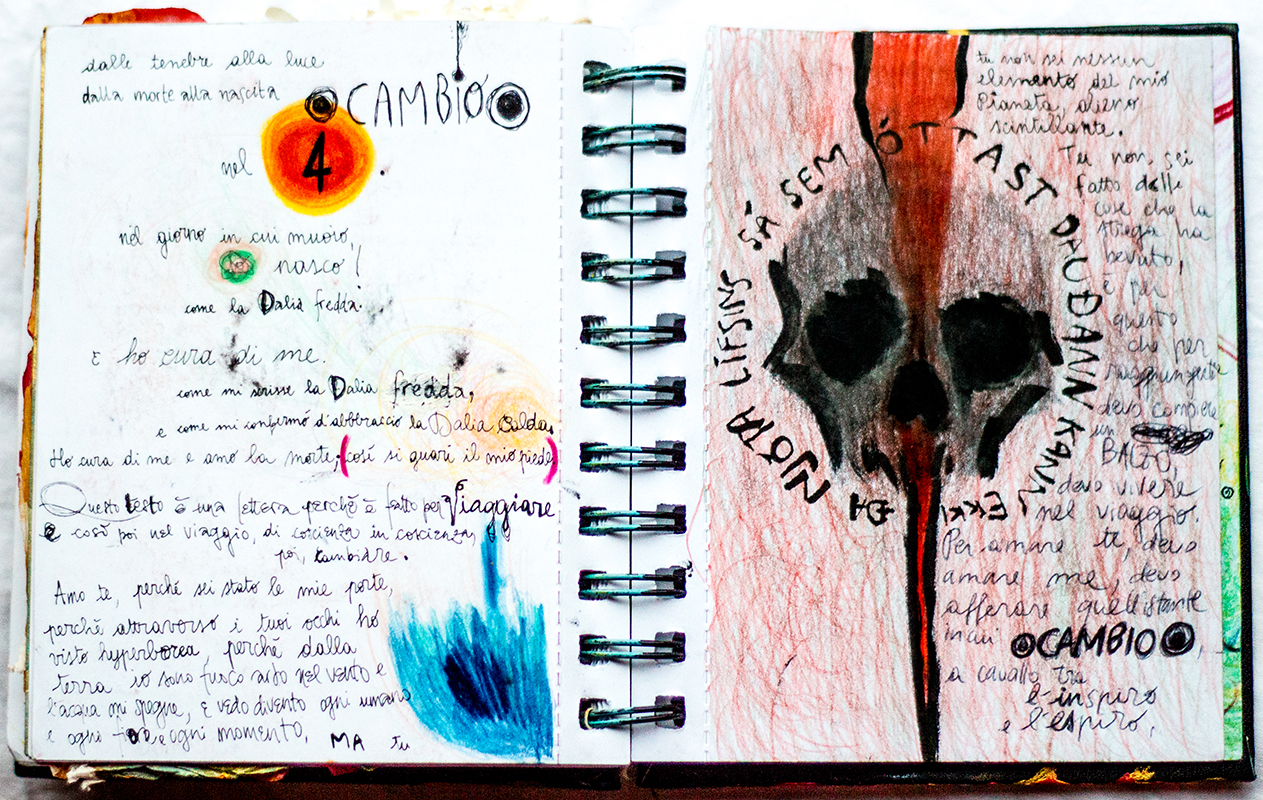 dalle tenebre alla luce
dalla morte alla nascita
CAMBIO
nel 4.
nel giorno in cui muoio,
nasco!
come la Dalia fredda.
E ho cura di me.
come mi scrisse la Dalia fredda,
e come mi confermò d'abbraccio la Dalia Calda.
Ho cura di me e amo la morte; (così si guarì il mio piede)
Questo testo è una lettera perché è fatto per Viaggiare
e così poi nel viaggio, di coscienza in coscienza,
poi, cambiare.
Amo te, perché sei stato le mie porte,
perché attraverso i tuoi occhi ho
visto hyperborea, perché dalla
terra io sono fuoco ardo nel vento e
l'acqua mi spegne, E vedo divento ogni umano
e ogni fiore e ogni momento, MA tu
tu non sei nessun
elemento del mio
Pianeta, alieno
scintillante.
Tu non sei
fatto delle
cose che la
strega ha
bevuto,
è per
questo
che per
raggiungerti
devo compiere
un
BALZO,
devo vivere
nel viaggio.
Per amare te, devo
amare me, devo
afferare quell'istante
in cui CAMBIO,
a cavallo tra
l'inspiro
e l'espiro,
SÁ SEM ÓTTAST DAUÐANN KANN EKKI AÐ NJÓTA LÍFSINS